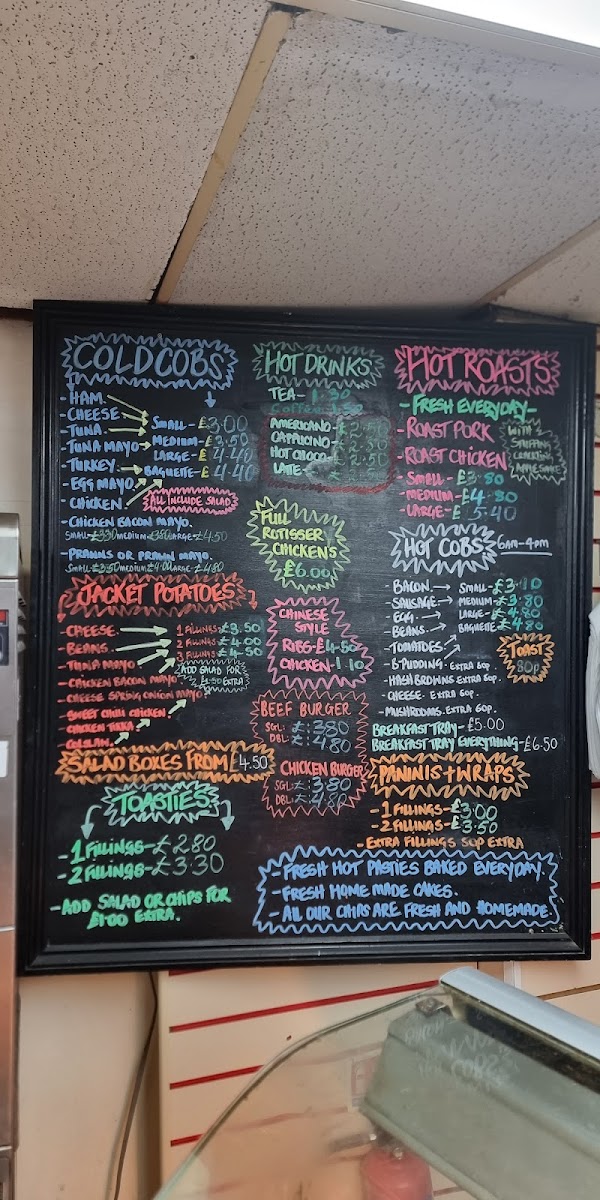 COLD COBS
- HAM.
- CHEESE
- TUNA
- TUNA MAYO
- TURKEY.
- EGG MAYO
- CHICKEN
SMALL - £3.00
MEDIUM - £3.50
LARGE - £4.40
BAGUETTE - £4.40
ALL INCLUDE SALAD
- CHICKEN BACON MAYO.
SMALL - £3.30 MEDIUM - £3.80 LARGE - £4.50
- PRAWNS OR PRAWN MAYO.
SMALL - £3.50 MEDIUM - £4.00 LARGE - £4.80
JACKET POTATOES
- CHEESE.
- BEANS.
- TUNA MAYO
- CHICKEN BACON MAYO
- CHEESE SPRING ONION MAYO
- SWEET CHILLI CHICKEN.
- CHICKEN TIKKA
- COLSLAW.
1 FILLINGS - £3.50
2 FILLINGS - £4.00
3 FILLINGS - £4.50
ADD SALAD FOR
EXTRA
SALAD BOXES FROM £4.50
TOASTIES
- 1 FILLINGS - £2.80
- 2 FILLINGS - £3.30
- ADD SALAD OR CHIPS FOR
£1.00 EXTRA.
HOT DRINKS
TEA - 1.30
Coffee
AMERICANO - £2.50
CAPPACINO -
HOT CHOCO - £2.50
LATTE -
FULL
ROTISSER
CHICKENS
£6.00
CHINESE
STYLE
RIBS - £4.50
CHICKEN - 1.10
BEEF BURGER
SGL: £3.80
DBL: £4.80
CHICKEN BURGER
SGL: £3.80
DBL: £4.80
HOT ROASTS
- FRESH EVERYDAY -
- ROAST PORK
- ROAST CHICKEN
WITH
STUFFING
CRACKLING
APPLESAUCE
- SMALL - £3.80
- MEDIUM - £4.80
- LARGE - £5.40
HOT COBS 6am-4pm
- BACON
- SAUSAGE
- EGG
- BEANS
- TOMATOES
SMALL - £3.10
MEDIUM - £3.80
LARGE - £4.80
BAGUETTE - £4.80
- B-PUDDING. EXTRA 60P.
- HASH BROWNS EXTRA 60P.
- CHEESE. EXTRA 60P.
- MUSHROOMS. EXTRA 60P.
TOAST
80p
BREAKFAST TRAY - £5.00
BREAKFAST TRAY EVERYTHING - £6.50
PANINIS + WRAPS
- 1 FILLINGS - £3.00
- 2 FILLINGS - £3.50
- EXTRA FILLINGS 50P EXTRA
- FRESH HOT PASTIES BAKED EVERYDAY.
- FRESH HOME MADE CAKES.
- ALL OUR CHIPS ARE FRESH AND HOMEMADE.